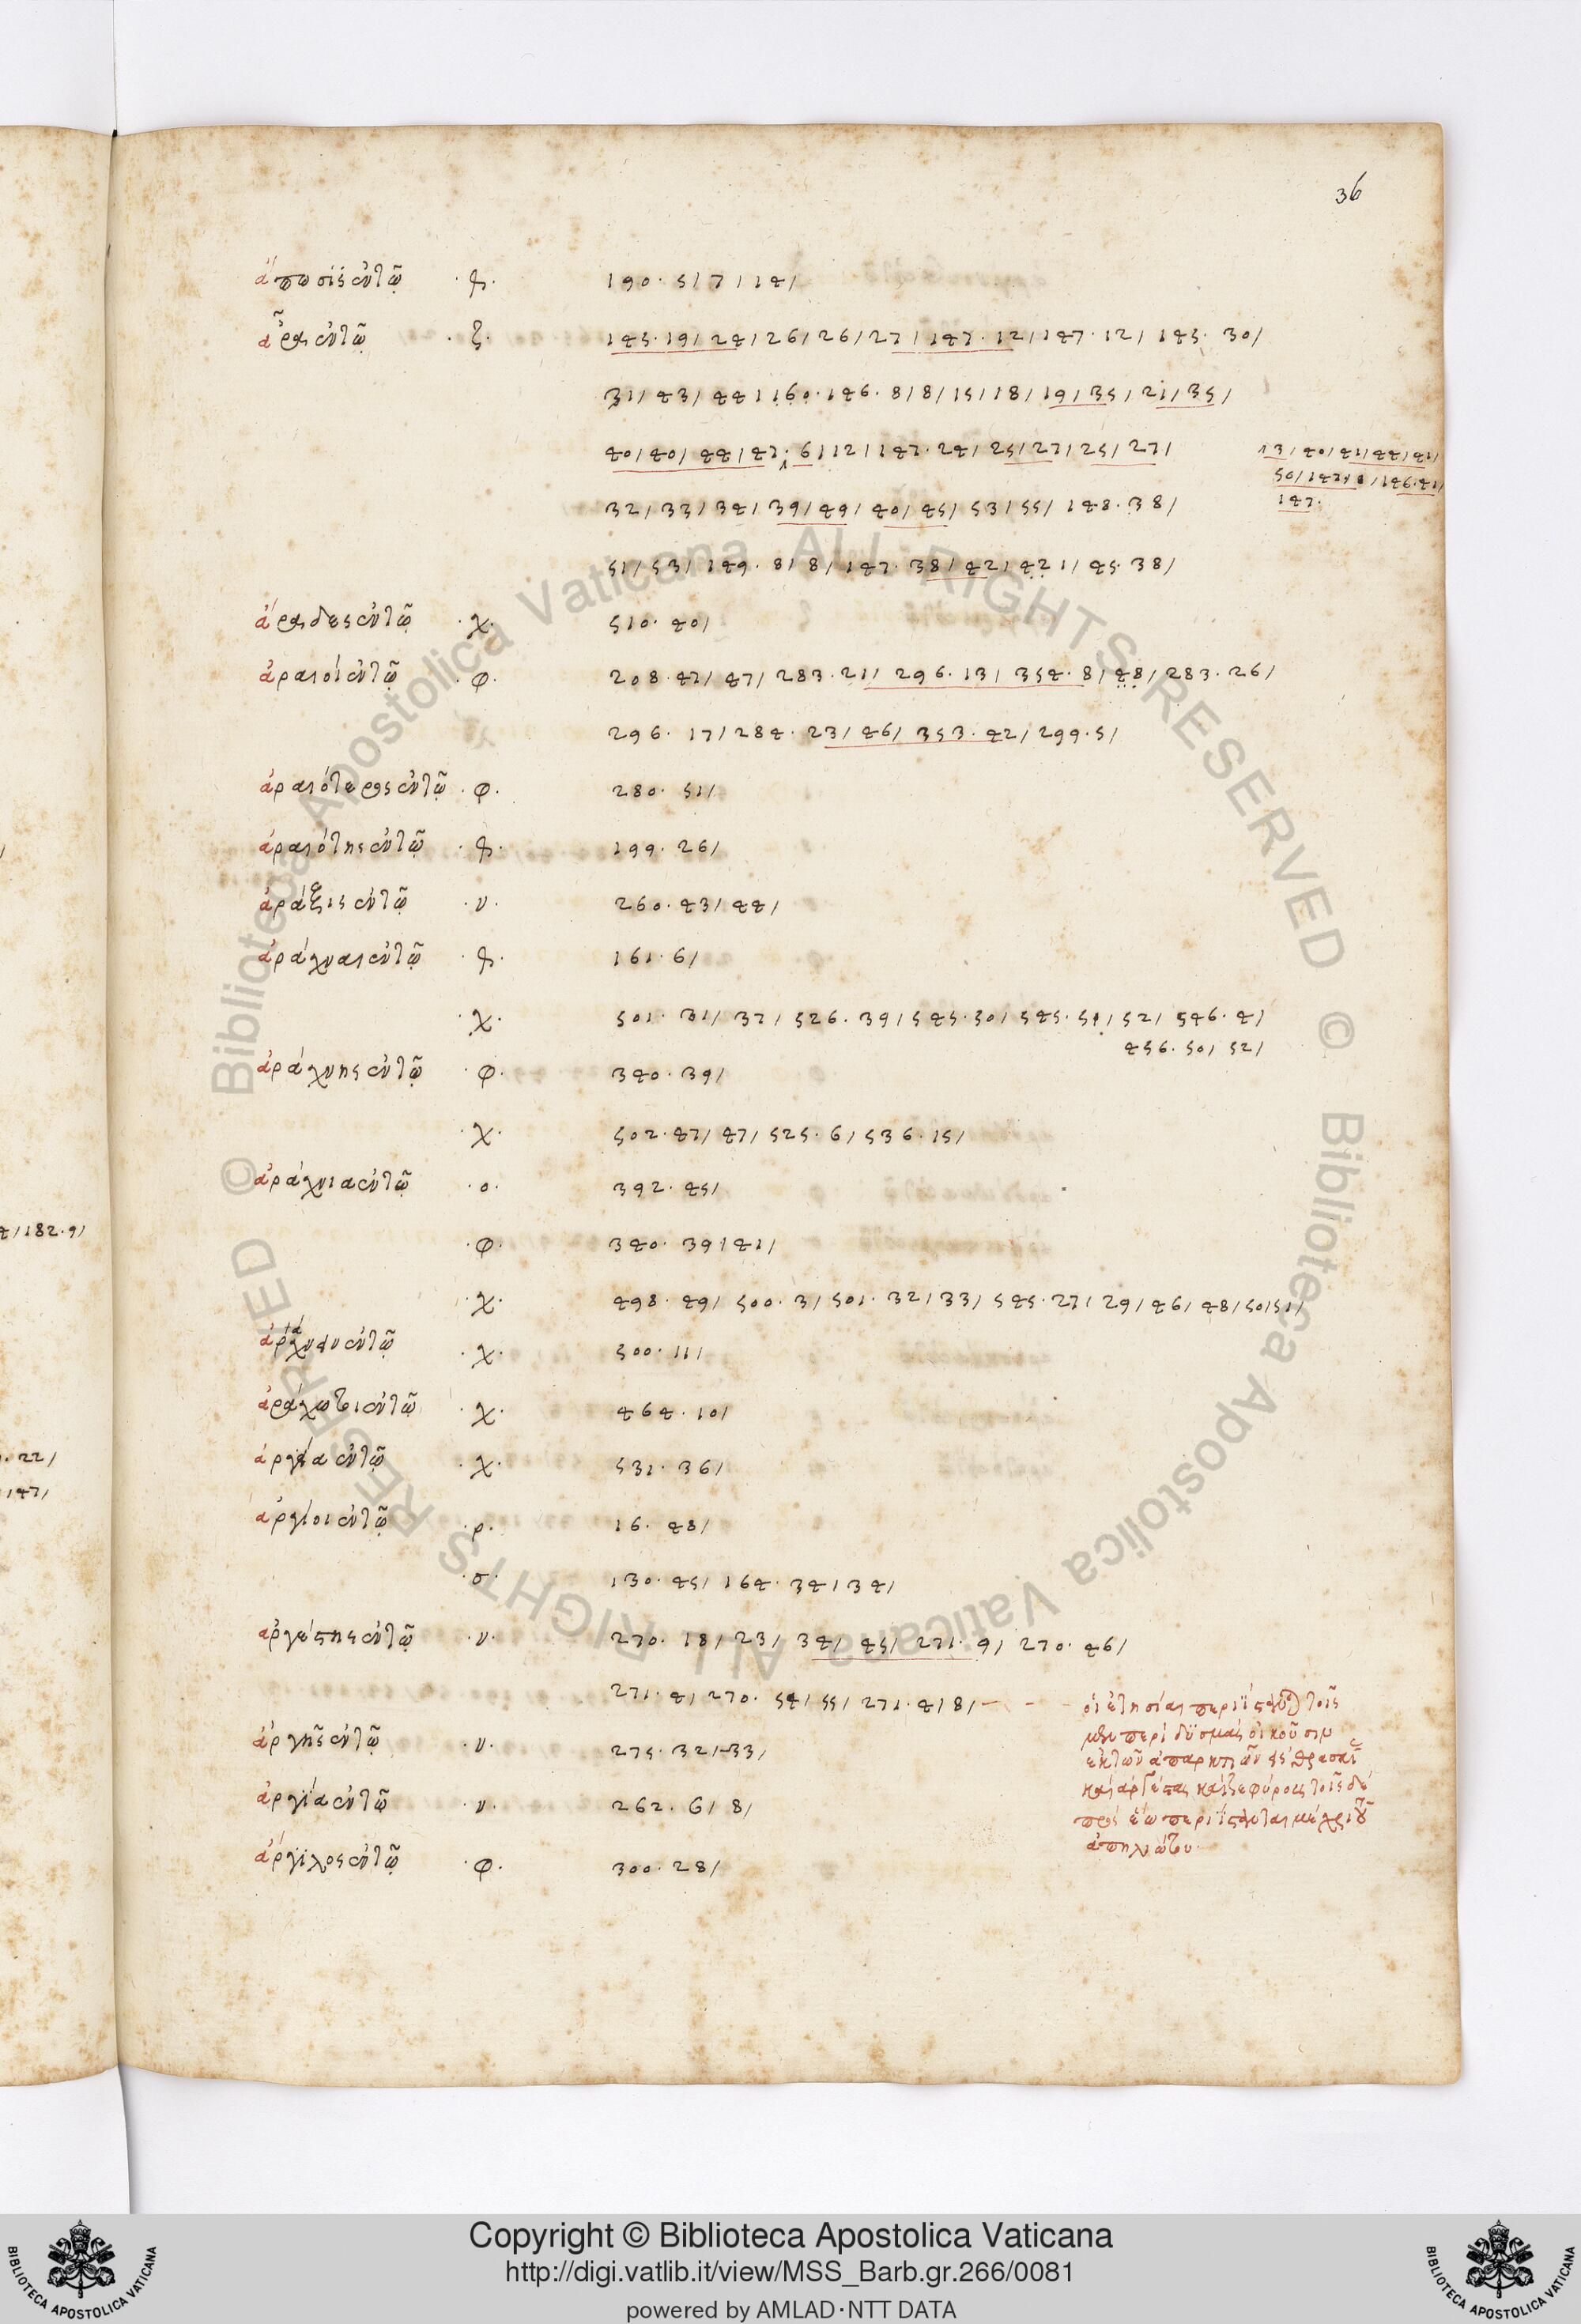 36
ἄπωσις ἐν τῷ · ϟ · 190 · 5 / 7 / 14 /
ἆρα ἐν τῷ · ζ · 145 · 19 / 24 / 26 / 26 / 27 / 147 · 12 / 147 · 12 / 145 · 30 /
31 / 43 / 44 / 160 · 146 · 8 / 8 / 15 / 18 / 19 / 35 / 21 / 35 /
40 / 40 / 44 / 47 · 6 / 12 / 147 · 24 / 25 / 27 / 25 / 27 /
13 / 40 / 41 / 44 / 41 /
32 / 33 / 34 / 39 / 49 / 40 / 45 / 53 / 55 / 148 · 38 /
147 ·
51 / 53 / 149 · 8 / 8 / 147 · 38 / 42 / 42 / 45 · 38 /
ἄραδες ἐν τῷ · χ · 510 · 40 /
ἀραιοὶ ἐν τῷ · φ · 208 · 47 / 47 / 283 · 21 / 296 · 13 / 354 · 8 / 48 / 283 · 26 /
296 · 17 / 284 · 23 / 46 / 353 · 42 / 299 · 5 /
ἀραιότερος ἐν τῷ · φ · 280 · 51 /
ἀραιότης ἐν τῷ · ϟ · 199 · 26 /
ἀράξις ἐν τῷ · ν · 260 · 43 / 44 /
ἀράχναι ἐν τῷ · ϟ · 161 · 6 /
· χ · 501 · 31 / 32 / 526 · 39 / 545 · 50 / 545 · 51 / 52 / 546 · 4 /
456 · 50 / 52 /
ἀράχνης ἐν τῷ · φ · 340 · 39 /
· χ · 502 · 47 / 47 / 525 · 6 / 536 · 15 /
ἀράχνια ἐν τῷ · ο · 392 · 45 /
· φ · 340 · 39 / 41 /
· χ · 498 · 49 / 500 · 3 / 501 · 32 / 33 / 545 · 27 / 29 / 46 / 48 / 50 / 51 /
ἐν τῷ · χ · 500 · 11 /
ἀράχωτοι ἐν τῷ · χ · 464 · 10 /
ἐν τῷ · χ · 531 · 36 /
ἀργεῖοι ἐν τῷ · ρ · 16 · 48 /
· σ · 130 · 45 / 164 · 34 / 34 /
ἀργέστης ἐν τῷ · ν · 270 · 18 / 23 / 34 / 45 / 271 · 9 / 270 · 46 /
271 · 4 / 270 · 54 / 55 / 271 · 4 / 8 / – – – οἱ ἐτησίαι περιΐστανται τοῖς
μὲν περὶ δυσμὰς οἰκοῦσιν
ἀργῆς ἐν τῷ · ν · 275 · 32 / 33 /
ἐκ τῶν ἀπαρκτιῶν εἰς θρασκίας
καὶ ἀργέστας καὶ ζεφύρους τοῖς δὲ
ἀργία ἐν τῷ · ν · 262 · 6 / 8 /
πρὸς ἕω περιΐστανται μέχρι τοῦ
ἀπηλιώτου ·
ἄργιλος ἐν τῷ · φ · 300 · 28 /
4 / 182 · 9 /
· 22 /
147 /
© Biblioteca Apostolica Vaticana ALL RIGHTS RESERVED © Biblioteca Apostolica Vaticana ALL RIGHTS RESERVED
Copyright © Biblioteca Apostolica Vaticana
http://digi.vatlib.it/view/MSS_Barb.gr.266/0081
powered by AMLAD·NTT DATA
BIBLIOTECA APOSTOLICA VATICANA
BIBLIOTECA APOSTOLICA VATICANA